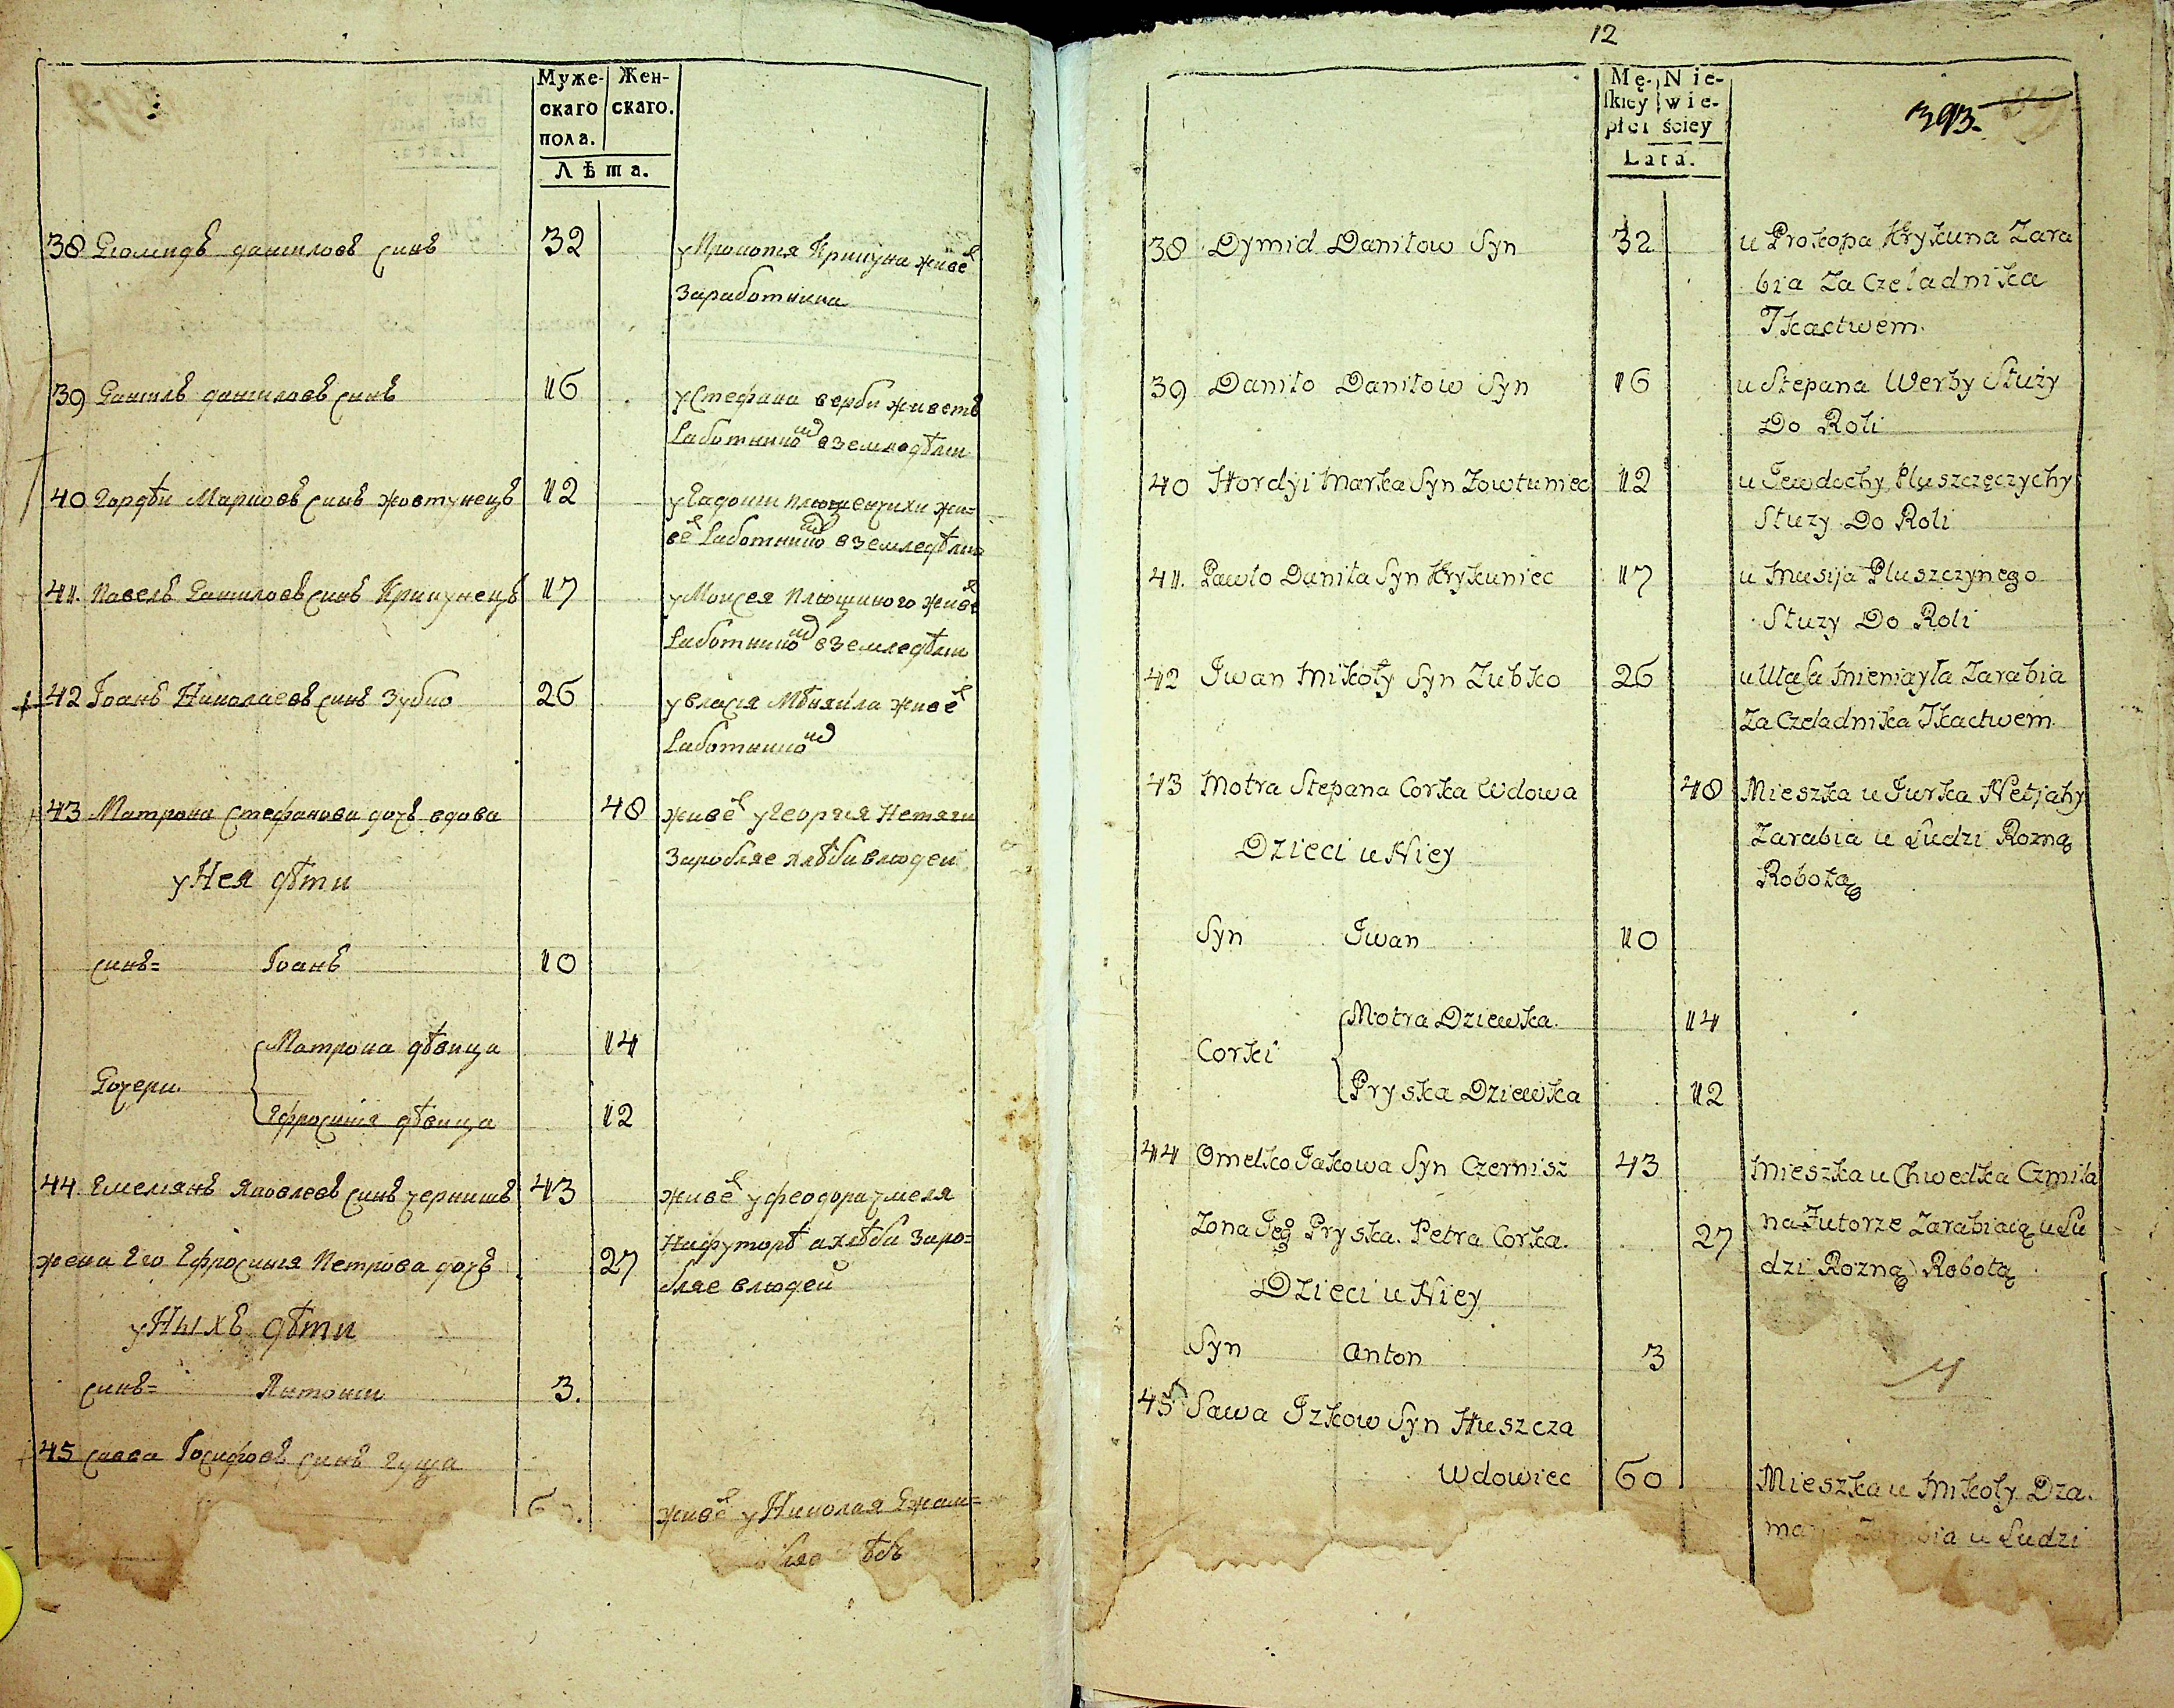 Муже- Жен-
скаго скаго.
пола.
Лѣта.
38 Диомидъ даниловъ синъ 32 у Прокопя Крикуна живе
заработника
39 Данилъ даниловъ синъ 16 у Стефана верби живетъ
работником в земледѣли
40 Гордѣи Марковъ синъ жовтунецъ 12 у Евдокии плющенчихи жи-
ве работником в земледѣли
41. Павелъ Даниловъ синъ Крикунецъ 17 у Моисея Плющиного живе
работником в земледѣли
42 Іоанъ Николаевъ синъ Зубко 26 у власия Мѣняйла живе
работником
43 Матрона Стефанова дочъ вдова 48 живе у Георгия Нетяги
Заробляе хлѣби влюдеи
у Нея дѣти
синъ= Іоанъ 10
Матрона дѣвица 14
Дочери.
Ефросиния дѣвица 12
44. Емелиянъ Яковлевъ синъ чернишъ 43 живе у феодора чмеля
На футорѣ а хлѣби Заро=
жена Его Ефросиния Петрова дочъ 27
бляе влюдей
у Ныхъ дѣти
синъ= Антонии 3.
45 савва Іосифовъ синъ гуща
живе у Николая
12
Mę- Nie-
skiey wie-
płci ściey
Lata.
393.
38 Dymid Daniłow Syn 32 u Prokopa Krykuna Zara
bia Za Czeladnika
Tkactwem.
39 Daniło Daniłow Syn 16 u Stepana Werby Służy
Do Roli
40 Hordyi Marka Syn Zowtuniec 12 u Jewdochy Pluszczęczychy
Służy Do Roli
41. Pawło Daniła Syn Krykuniec 17 u Musija Pluszczynego
Służy Do Roli
42 Iwan Mikoły Syn Zubko 26 u Ułasa Mieniayła Zarabia
Za Czeladnika Tkactwem
43 Motra Stepana Corka Wdowa 48 Mieszka u Jurka Netjahy
Zarabia u Ludzi Rozną
Dzieci u Niey
Robotą
Syn Iwan 10
Motra Dziewka. 14
Corki
Pryska Dziewka 12
44 Omelko Jakowa Syn Czernisz 43 Mieszka u Chwedka Czmila
na Futorze Zarabiaią u Lu
Zona Jego Pryska Petra Corka. 27
dzi Rozną Robotą
Dzieci u Niey
Syn Anton 3
45 Sawa Izkow Syn Huszcza
Wdowiec 60 Mieszka u Mikoły Dza.
u Ludzi